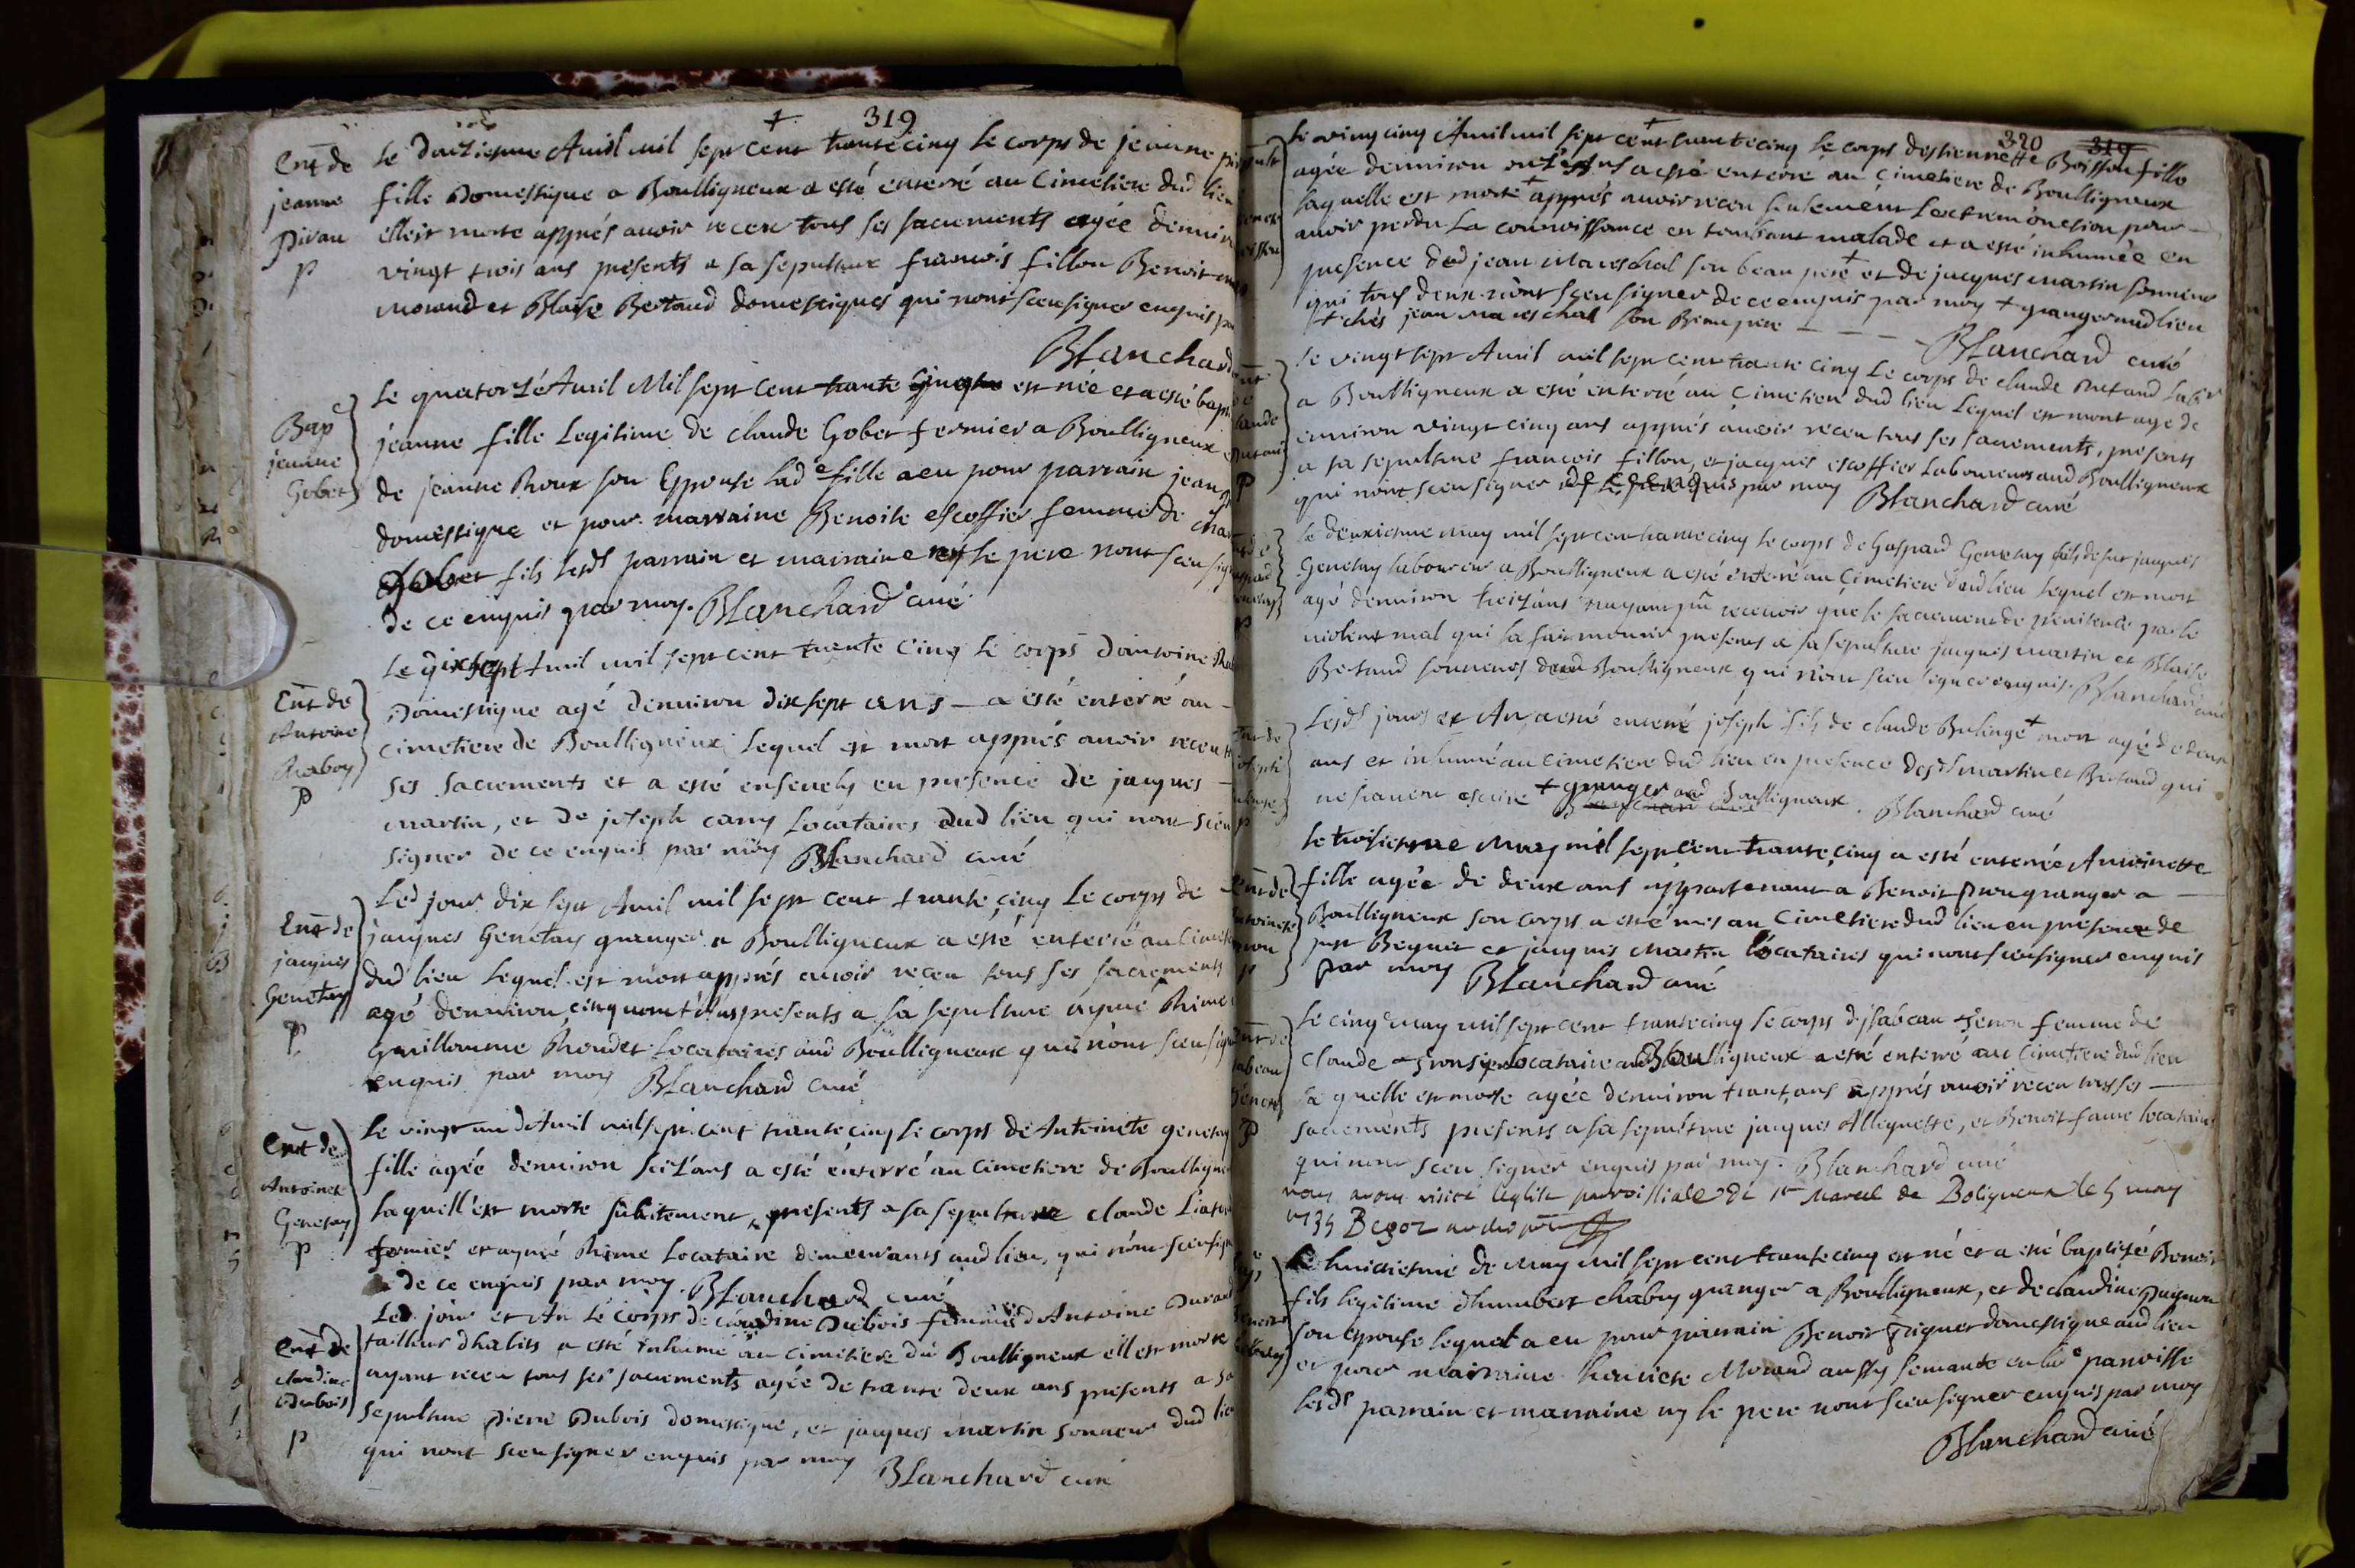 319
Ent de
jeanne
Pivau
P
Le douziesme Avril mil sept cent trante cinq le corps de jeanne
fille Domestique a Boulligneux a esté enterré au Cimetiere dud lieu
elleest morte apprés auoir receu tous ses sacrements agée denuiron
vingt trois ans presents a sa sepulture francois fillon Benoit
morand et Blaise Bertaud domestiques qui nont sceu signer enquis par
Blanchard
Bap
jeanne
Gobet
Le quatorzé Avril Mil sept cent trante cinq est née et a esté bapt
jeanne fille Legitime de claude Gobet fermier a Boulligneux et
de jeanne Roux son Epouse lade fille a eu pour parrain jean
domestique et pour marraine Benoite escoffier femme de
Gobet fils lesds parrain et marraine ny le pere nont sceu sig
de ce enquis par moy. Blanchard curé
Ent de
Antoine
Raboy
P
Le dixsept Avril mil sept cent trente Cinq le corps dantoine
Domestique agé denuiron dixsept ans - a esté enterré au -
cimetiere de Boulligneux lequel est mort appres auoir receu
ses sacrements et a esté enseuely en presence de jacques -
martin, et de joseph carry Locataires dud lieu qui nont sceu
signer de ce enquis par moy Blanchard curé
Ent de
jacques
Genetay
P
Led jour dix sept Avril mil sept cent trante cinq Le corps de
jacques Genetay granger a Boulligneux a esté enterré au Cimet
dud lieu lequel est mort apprés auoir receu tous ses sacrements
agé denuiron cinquant'ans presents a sa sepulture aymé Rime
Guillaume Rondet Locataires aud Boulligneux qui nont sceu sig
enquis par moy Blanchard curé
Ent de
Antoinete
Genetay
P
Le vingt un dAvril mil sept cent trante cinq le corps de Antoinete genetay
fille agée denuiron seiz'ans a esté enterré au cimetiere de Boullign
laquell'est morte subitement, presents a sa sepulture claude
fermier et aymé Rime Locataire demeurants aud lieu, qui nont sceu sign
de ce enquis par moy. Blanchard curé
Ent de
claudine
Dubois
P
Led jour et An Le corps de claudine Dubois femme dAntoine Durand
tailleur dhabits a esté inhumé au cimetiere du Boulligneux elle est morte
ayant receu tous ses sacrements agée de trante deux ans presents a sa
sepulture Pierre Dubois domestique, et jacques martin sonneur dud lieu
qui nont sceu signer enquis par moy Blanchard curé
320 319
Le ving cinq Avril mil sept cent trante cinq le corps destiennette Boisson fille
agée denuiron ans a esté enterré au cimetiere de Boulligneux
laquelle est morte + apprés auoir receu seulement lextremonction pour -
auoir perdu La connoissance en tombant malade et a esté inhumée en
presence dud jean Mareschal son beau pere + et de jacques martin sonneur
qui tous deux nont sceu signer de ce enquis par moy + granger aud lieu
+ chés jean Mareschal son Beau pere
Blanchard curé
Le vingt sept Avril mil sept cent trante cinq Le corps de claude Labr
a Boulligneux a esté enterré au Cimetiere dud lieu Lequel est mort agé de
enuiron vingt cinq ans apprés auoir receu tous ses sacrements, presents
a sa sepulture francois fillon, et jacques escoffier Laboureurs aud Boulligneux
qui nont sceu signer de ce enquis par moy Blanchard curé
Le deuxiesme may mil sept cent trante cinq le corps de Gaspard Genetay fils de fut jacques
Genetay laboureur a Boulligneux a esté enterré au Cimetiere dud lieu lequel est mort
agé denuiron treiz'ans nayant pû receuoir que le sacrement de penitence par le
violent mal qui la fait mourir presents a sa sepulture jacques martin et Blaise
Bertaud sonneurs dud Boulligneux qui n'ont sceu signer enquis. Blanchard curé
Lesds jours et An a esté enterré joseph fils de claude + mort agé de deux
ans et inhumé au cimetiere dud lieu en presence desds martin et Bertaud qui
ne scauent escrire + granger aud Boulligneux. Blanchard curé
Le troisiesme May mil sept cent trante cinq a esté enterrée Antoinette
fille agée de deux ans appartenant a Benoit granger a -
Boulligneux son corps a esté mis au Cimetiere dud lieu en presence de
just Beguet et jacques Martin locataires qui nont sceu signer enquis
par moy Blanchard curé
Le cinq may mil sept cent trante cinq le corps d'jsabeau femme de
Claude locataire aud Boulligneux a esté enterré au Cimetiere dud lieu
laquelle est morte agée denuiron trant'ans apprés auoir receu tous ses -
sacrements presents a sa sepulture jacques Allegnette, et Benoit faure locataires
qui nont sceu signer enquis par moy. Blanchard curé
nous auons visité leglise parroissiale de st Marcel de Boligneux le 5 may
1735
Le huictiesme de May mil sept cent trante cinq est né et a esté baptisé Benoit
fils legitime dhumbert chabry granger a Boulligneux, et de claudine
son Epouse lequel a eu pour parrain Benoit domestique aud lieu
et pour marraine Morand aussy seruante en lade parroisse
lesds parrain et marraine ny le pere nont sceu signer enquis par moy
Blanchard curé